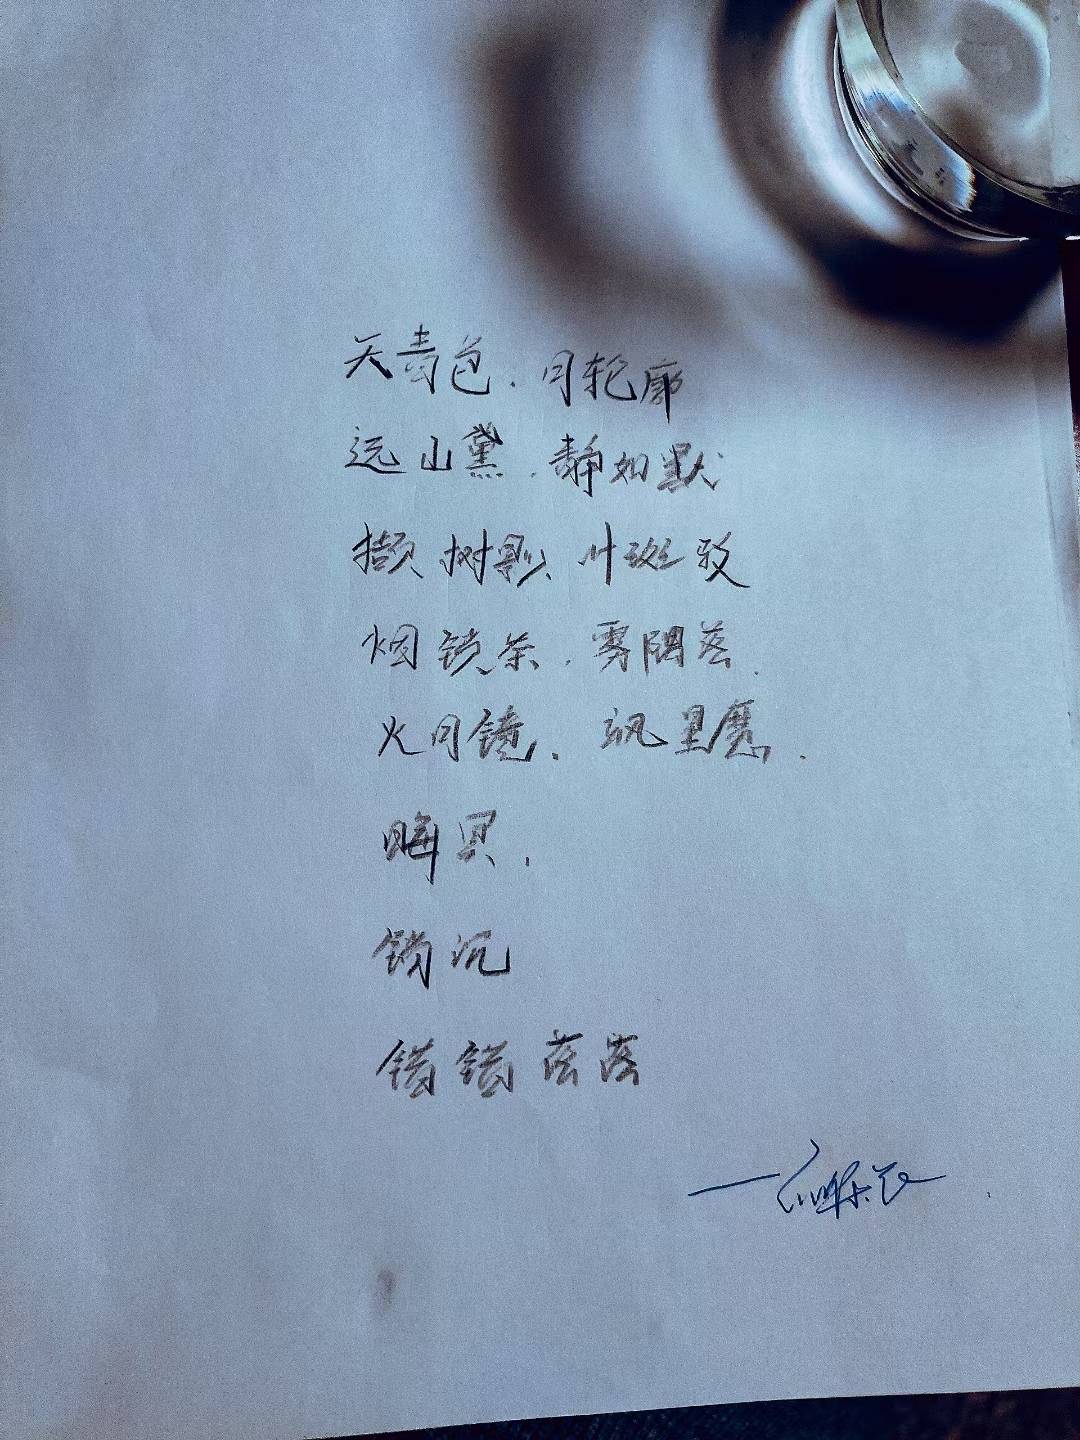 天青色.月轮廓
远山黛.静如默
撷树影、叶斑驳
烟锁茶.雾隔茶.
火月镜.飒里魔.
晦冥.
镝沉
错错落落